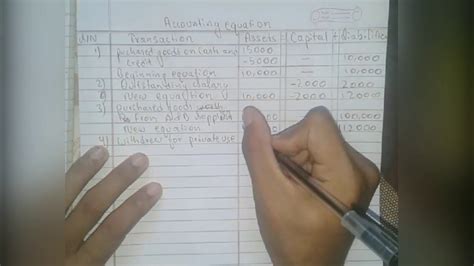 Accounting equation
S/N Transaction Assets = Capital + Liabilities
1) purchased goods on cash and 15,000
credit -5000 — 10,000
Beginning equation 10,000 — 10,000
2) Outstanding salary -2000 2000
New equation 10,000 -2000 12000
3) purchased goods
from supplier 100,000
New equation 112000
4) withdrew for private use